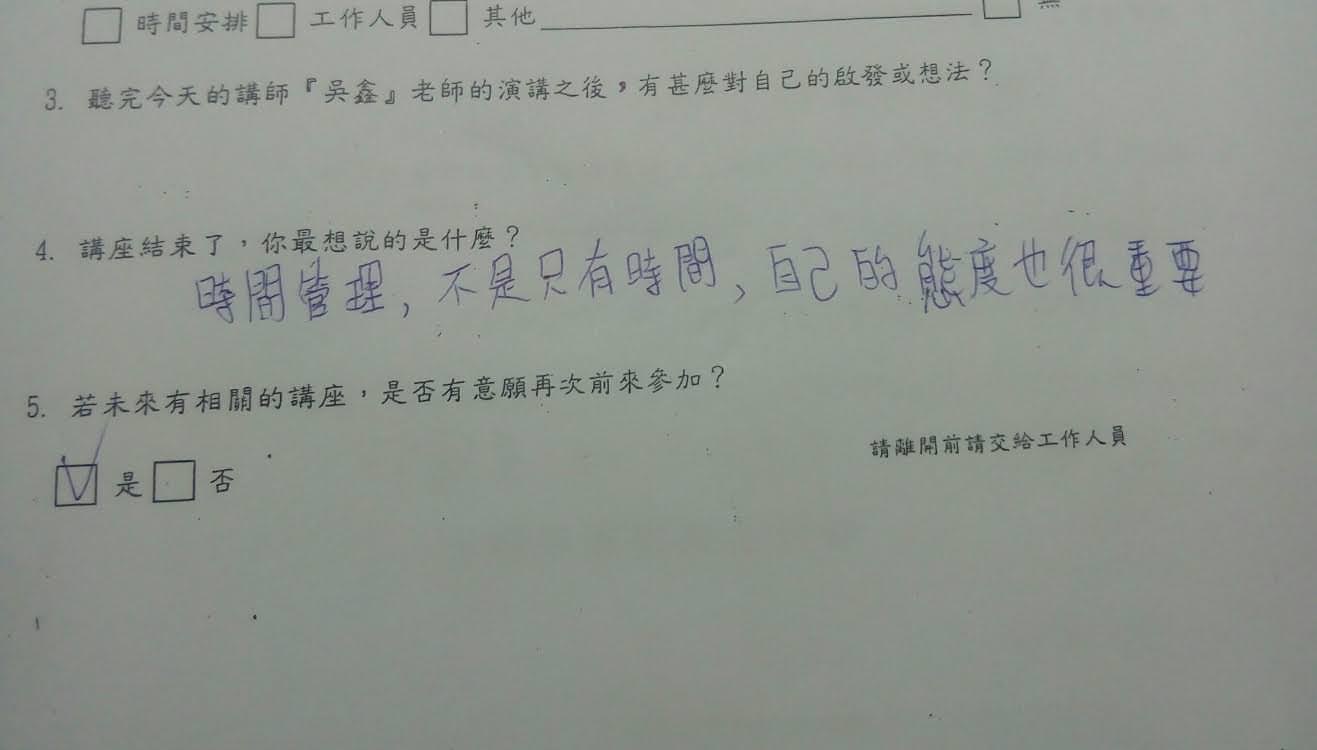 □ 時間安排 □ 工作人員 □ 其他__________ □
3. 聽完今天的講師『吳鑫』老師的演講之後，有甚麼對自己的啟發或想法？
4. 講座結束了，你最想說的是什麼？
時間管理, 不是只有時間、自己的態度也很重要
5. 若未來有相關的講座，是否有意願再次前來參加？
請離開前請交給工作人員
☑ 是 □ 否